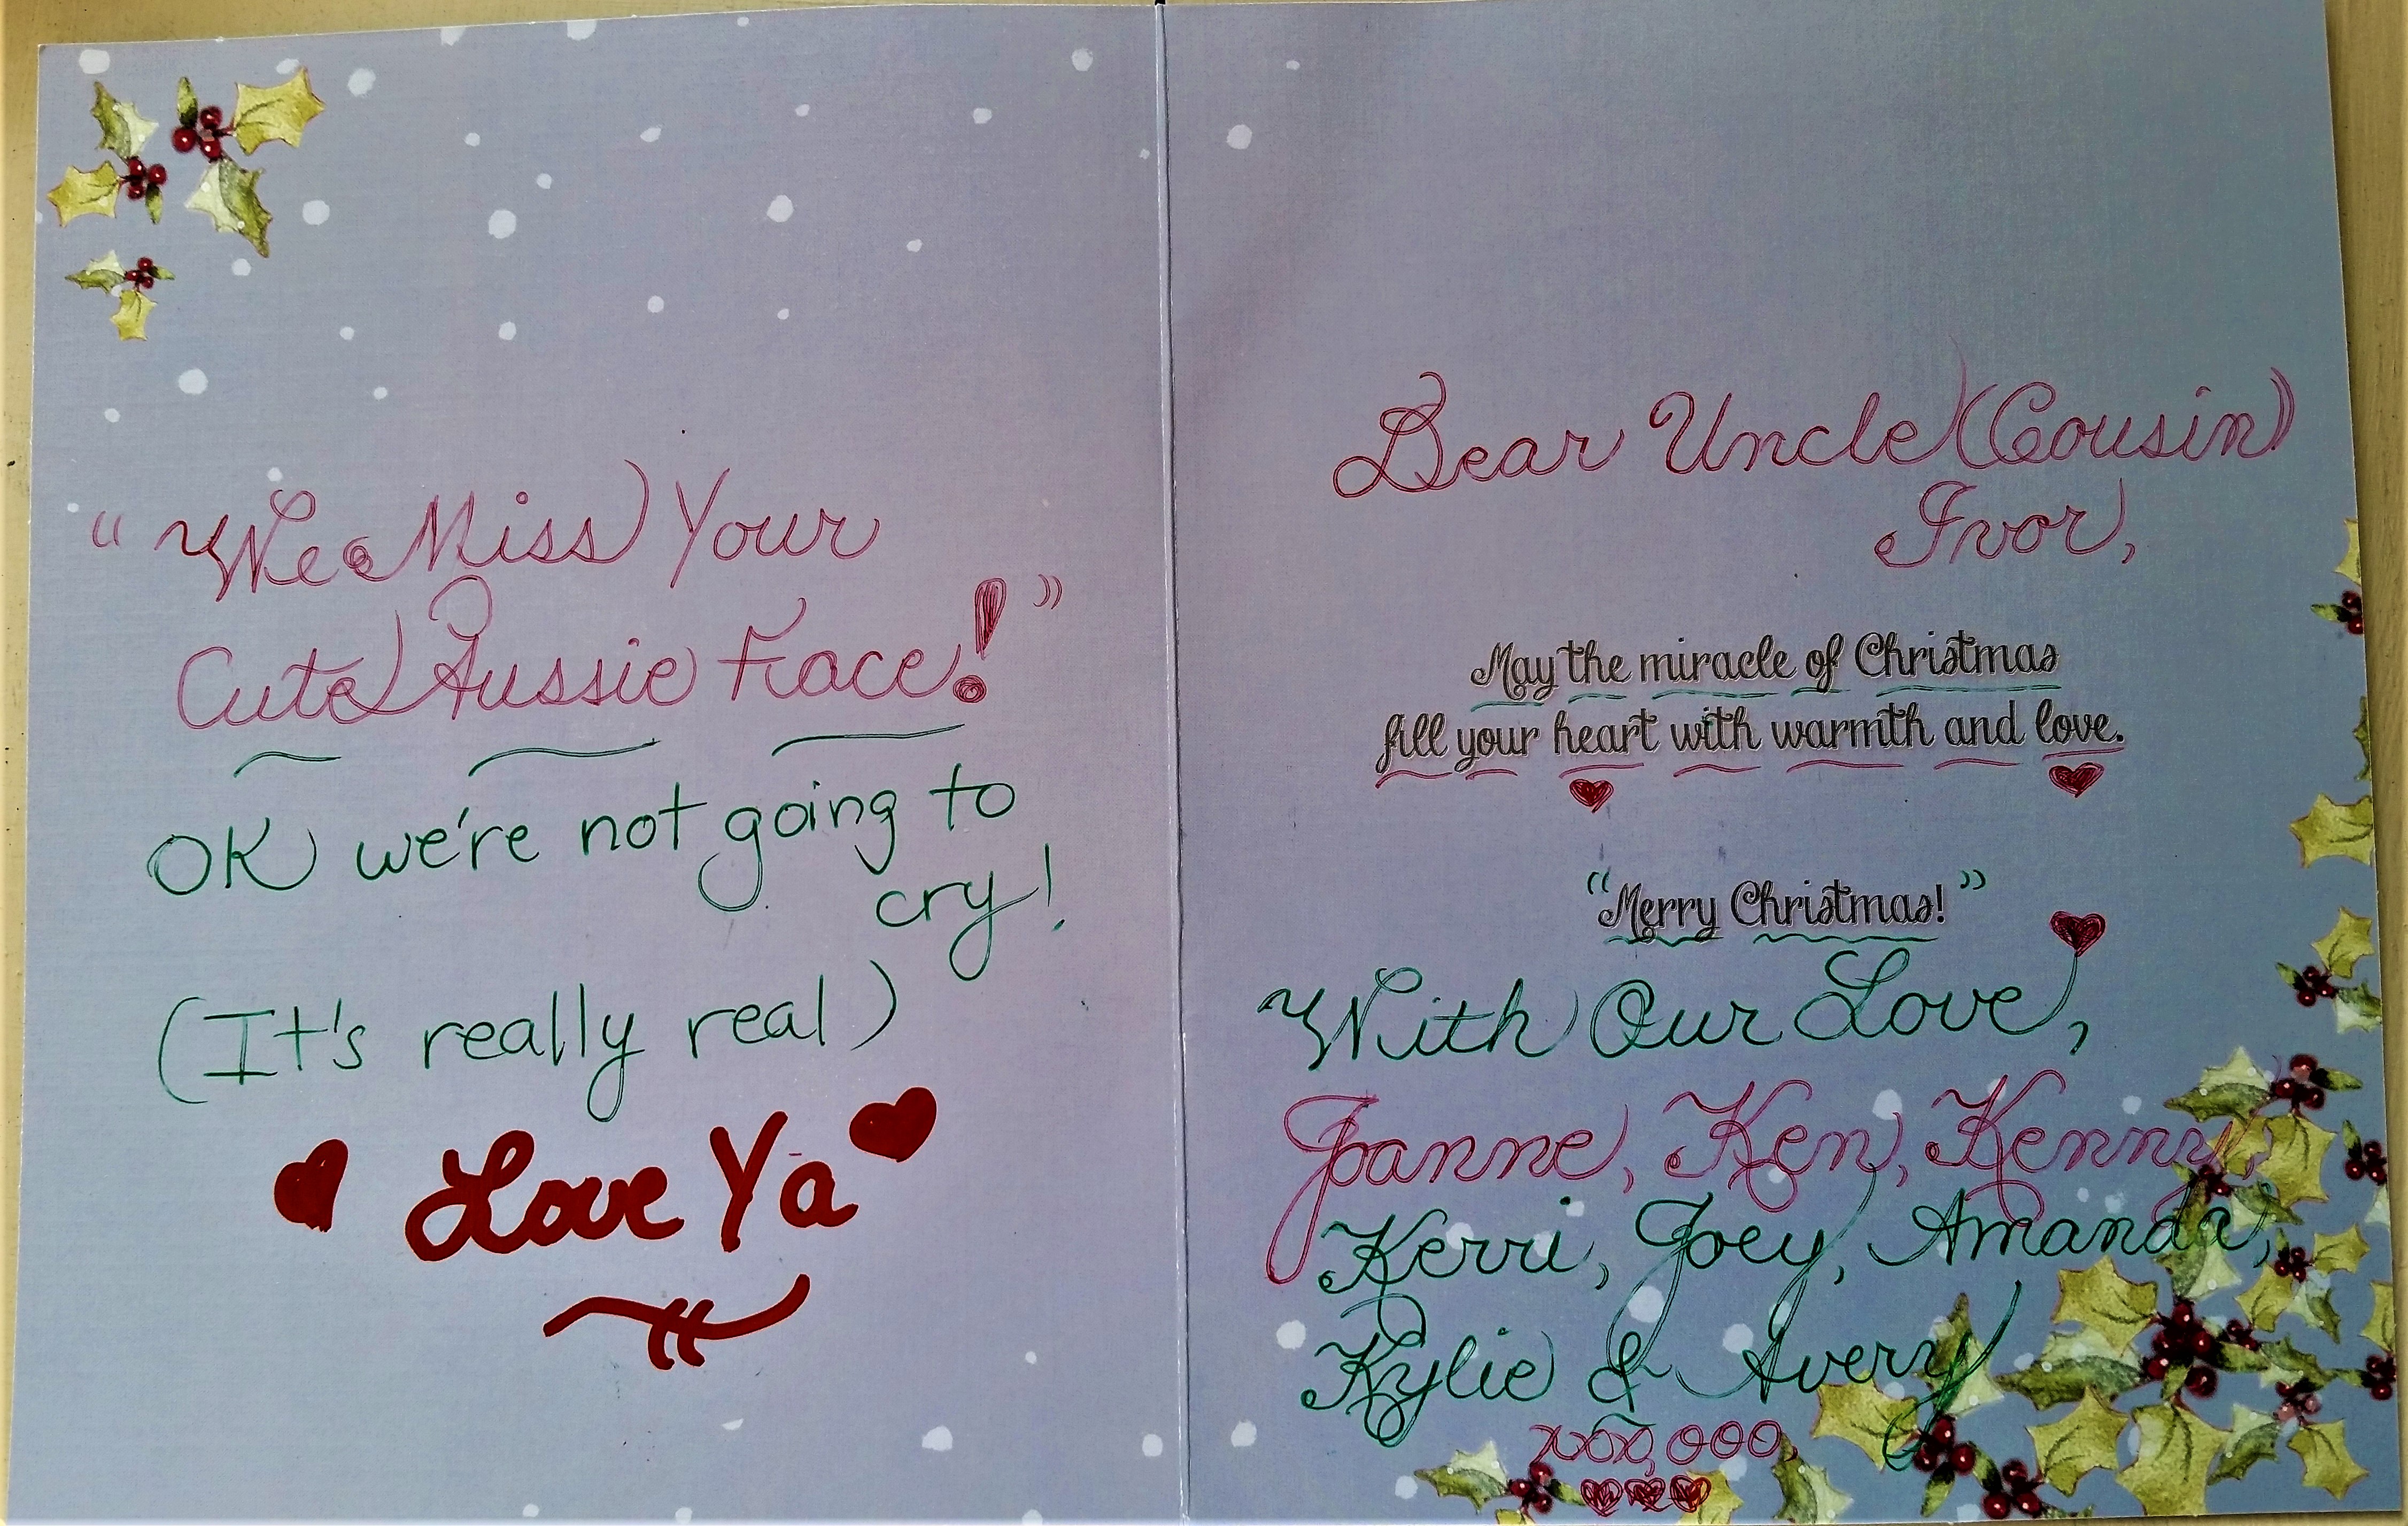 "We Miss Your
Cute Aussie Face!"
OK we're not going to
cry!
(It's really real)
Love Ya
Dear Uncle (Cousin)
Ivor,
May the miracle of Christmas
fill your heart with warmth and love.
"Merry Christmas!"
With Our Love,
Joanne, Ken, Kenny,
Kerri, Joey, Amanda,
Kylie & Avery
xxx,ooo